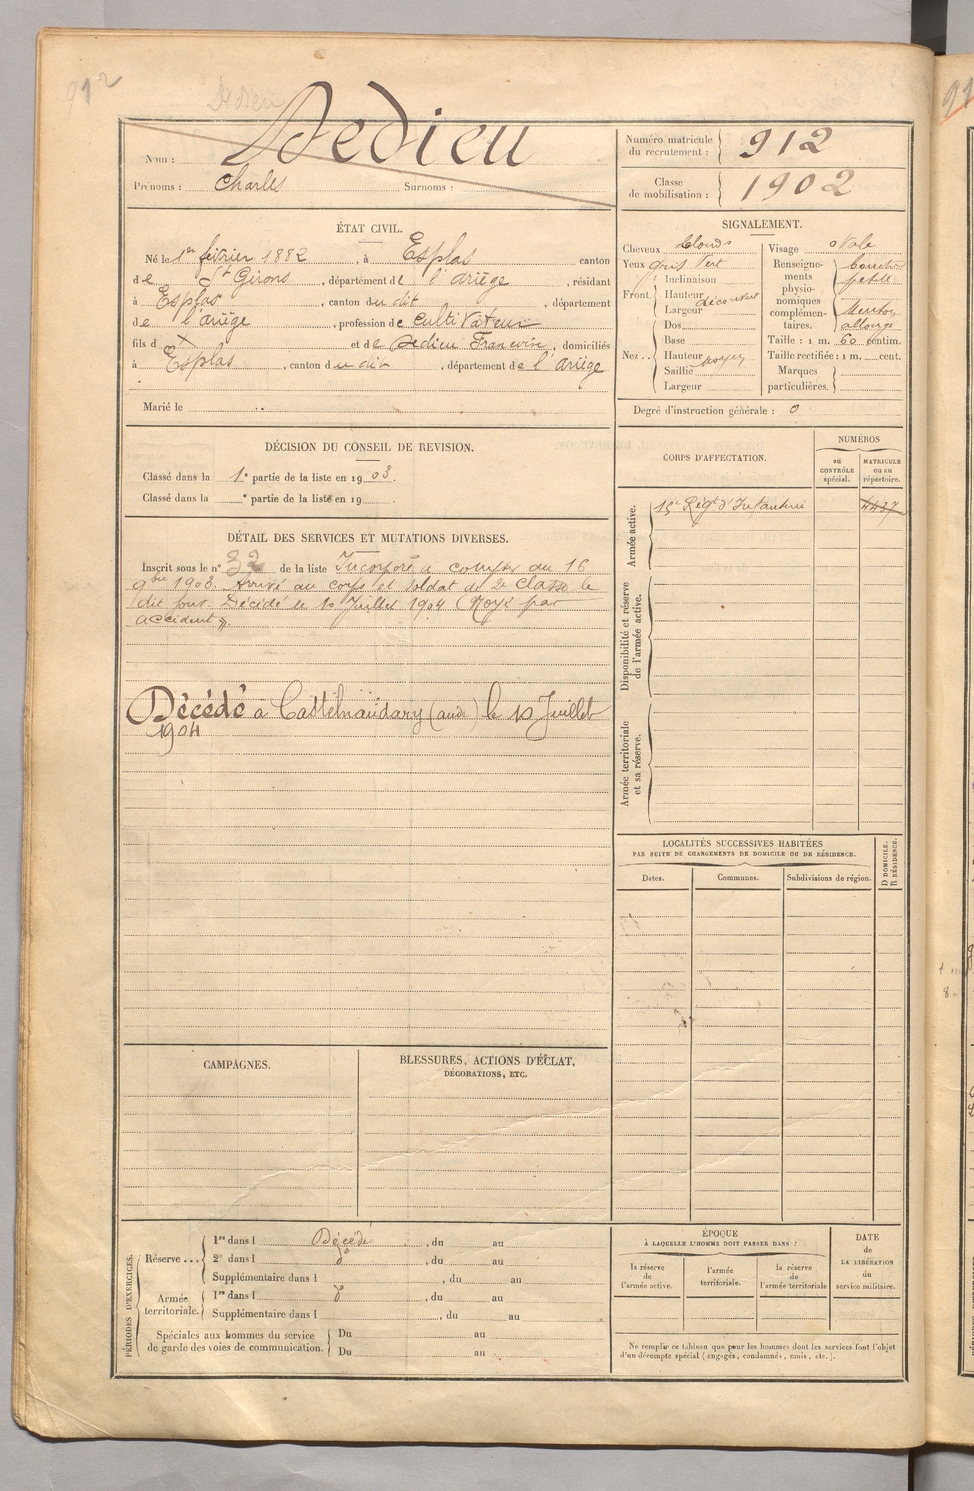 912
Dedieu
Nom : Dedieu
Prénoms : Charles Surnoms :
Numéro matricule du recrutement : 912
Classe de mobilisation : 1902
ÉTAT CIVIL.
Né le 1er février 1882, à Esplas canton
de St Girons, département de l'ariège, résidant
à Esplas, canton du dit, département
de l'ariège, profession de cultivateur
fils d X et de Dedieu Francoise, domiciliés
à Esplas, canton du dit, département de l'ariège
Marié le
SIGNALEMENT.
Cheveux blonds
Yeux gris Vert
Front Inclinaison
Hauteur découvert
Largeur
Nez Dos
Base
Hauteur moyen
Saillie
Largeur
Visage ovale
Renseignements physionomiques complémentaires. bouche petite Menton allongé
Taille : 1 m. 60 centim.
Taille rectifiée : 1 m. cent.
Marques particulières.
Degré d'instruction générale : 0
DÉCISION DU CONSEIL DE REVISION.
Classé dans la 1e partie de la liste en 1903.
Classé dans la e partie de la liste en 19
DÉTAIL DES SERVICES ET MUTATIONS DIVERSES.
Inscrit sous le n° 32 de la liste Incorporé à compter du 16
9bre 1903. Arrivé au corps et soldat de 2e classe le
dit jour. Décédé le 10 Juillet 1904 (Noyé par
accident).
Décédé à Castelnaudary (aude) le 10 Juillet
1904
CORPS D'AFFECTATION.
NUMÉROS
au CONTRÔLE spécial.
MATRICULE ou au répertoire.
Armée active.
15e Régt d'Infanterie 4437
Disponibilité et réserve de l'armée active.
Armée territoriale et sa réserve.
LOCALITÉS SUCCESSIVES HABITÉES
PAR SUITE DE CHANGEMENTS DE DOMICILE OU DE RÉSIDENCE.
Dates. Communes. Subdivisions de région. D DOMICILE. R RÉSIDENCE.
CAMPAGNES.
BLESSURES, ACTIONS D'ÉCLAT,
DÉCORATIONS, ETC.
PÉRIODES D'EXERCICES.
Réserve ... 1re dans l Décédé, du au
2e dans l do, du au
Supplémentaire dans l, du au
Armée territoriale. 1re dans l do, du au
Supplémentaire dans l, du au
Spéciales aux hommes du service Du au
de garde des voies de communication. Du au
ÉPOQUE
À LAQUELLE L'HOMME DOIT PASSER DANS :
la réserve de l'armée active.
l'armée territoriale.
la réserve de l'armée territoriale
DATE de LA LIBÉRATION du service militaire.
Ne remplir ce tableau que pour les hommes dont les services font l'objet
d'un décompte spécial (engagés, condamnés, omis, etc.).